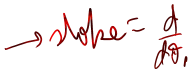 → slope = d/dθ,